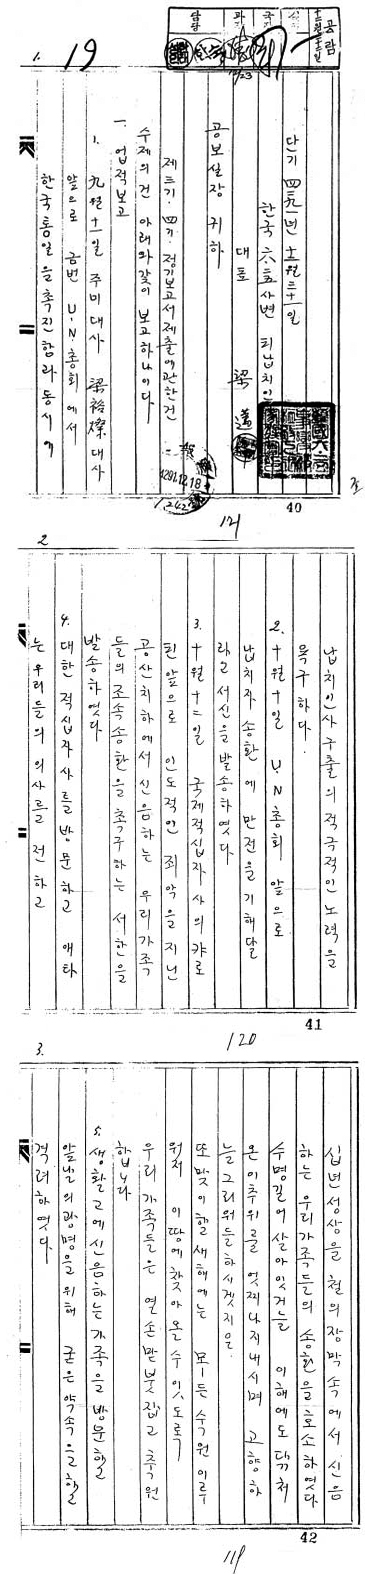 공람
담당
19
1.
단기 四二九一년 十二월 三十一일
한국 六·二五사변 피납치인
대표 梁
공보실장 귀하
제三기·四기·정기보고서제출에관한건
수제의건 아래와같이 보고하나이다
一. 업적보고
1. 九월十一일 주미대사 梁裕燦대사
앞으로 금번 U.N.총회에서
한국통일을촉진함과동시에
4291.12.18
40
121
2
납치인사구출의적극적인노력을
목구하다.
2. 十월十일 U.N총회 앞으로
납치자 송환에만전을기해달
라고서신을발송하엿다
3. 十월十二일 국제적십자사의캬로
힌앞으로 인도적인 죄악을지닌
공산치하에서신음하는 우리가족
들의조속송환을촉구하는서한을
발송하엿다
4. 대한적십자사를방문하고 애타
는우리들의의사를전하고
41
120
3.
십년성상을철의장막속에서신음
하는우리가족들의송환을호소하엿다
수명길어살아잇거늘 이해에도닥처
온이추위를엇찌나지내시며 고향하
늘그리워들하시겟지요.
또맞이할새해에는 모―든수원이루
워저 이땅에찾아올수잇도록
우리가족들은 연손맏붓잡고축원
합니다
5. 생활고에신음하는가족을방문하야
앞날의광명을위해 굳은약속을하야
격려하엿다.
42
119